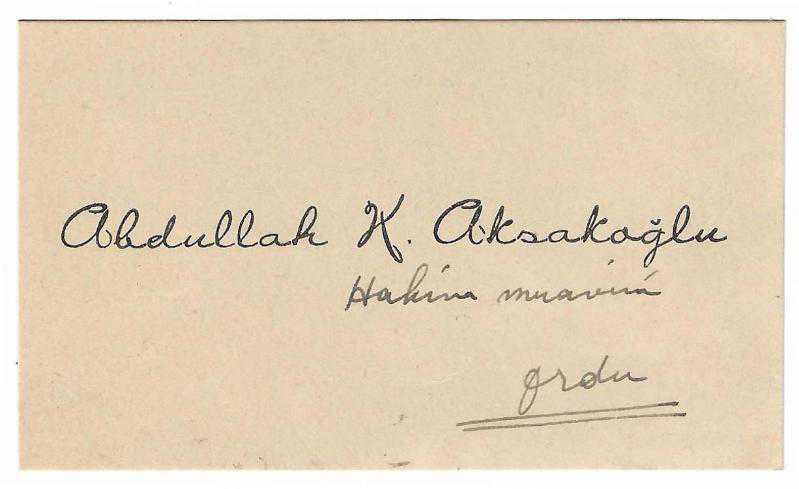 Abdullah K. Aksakoğlu
Hakim muavini
Ordu